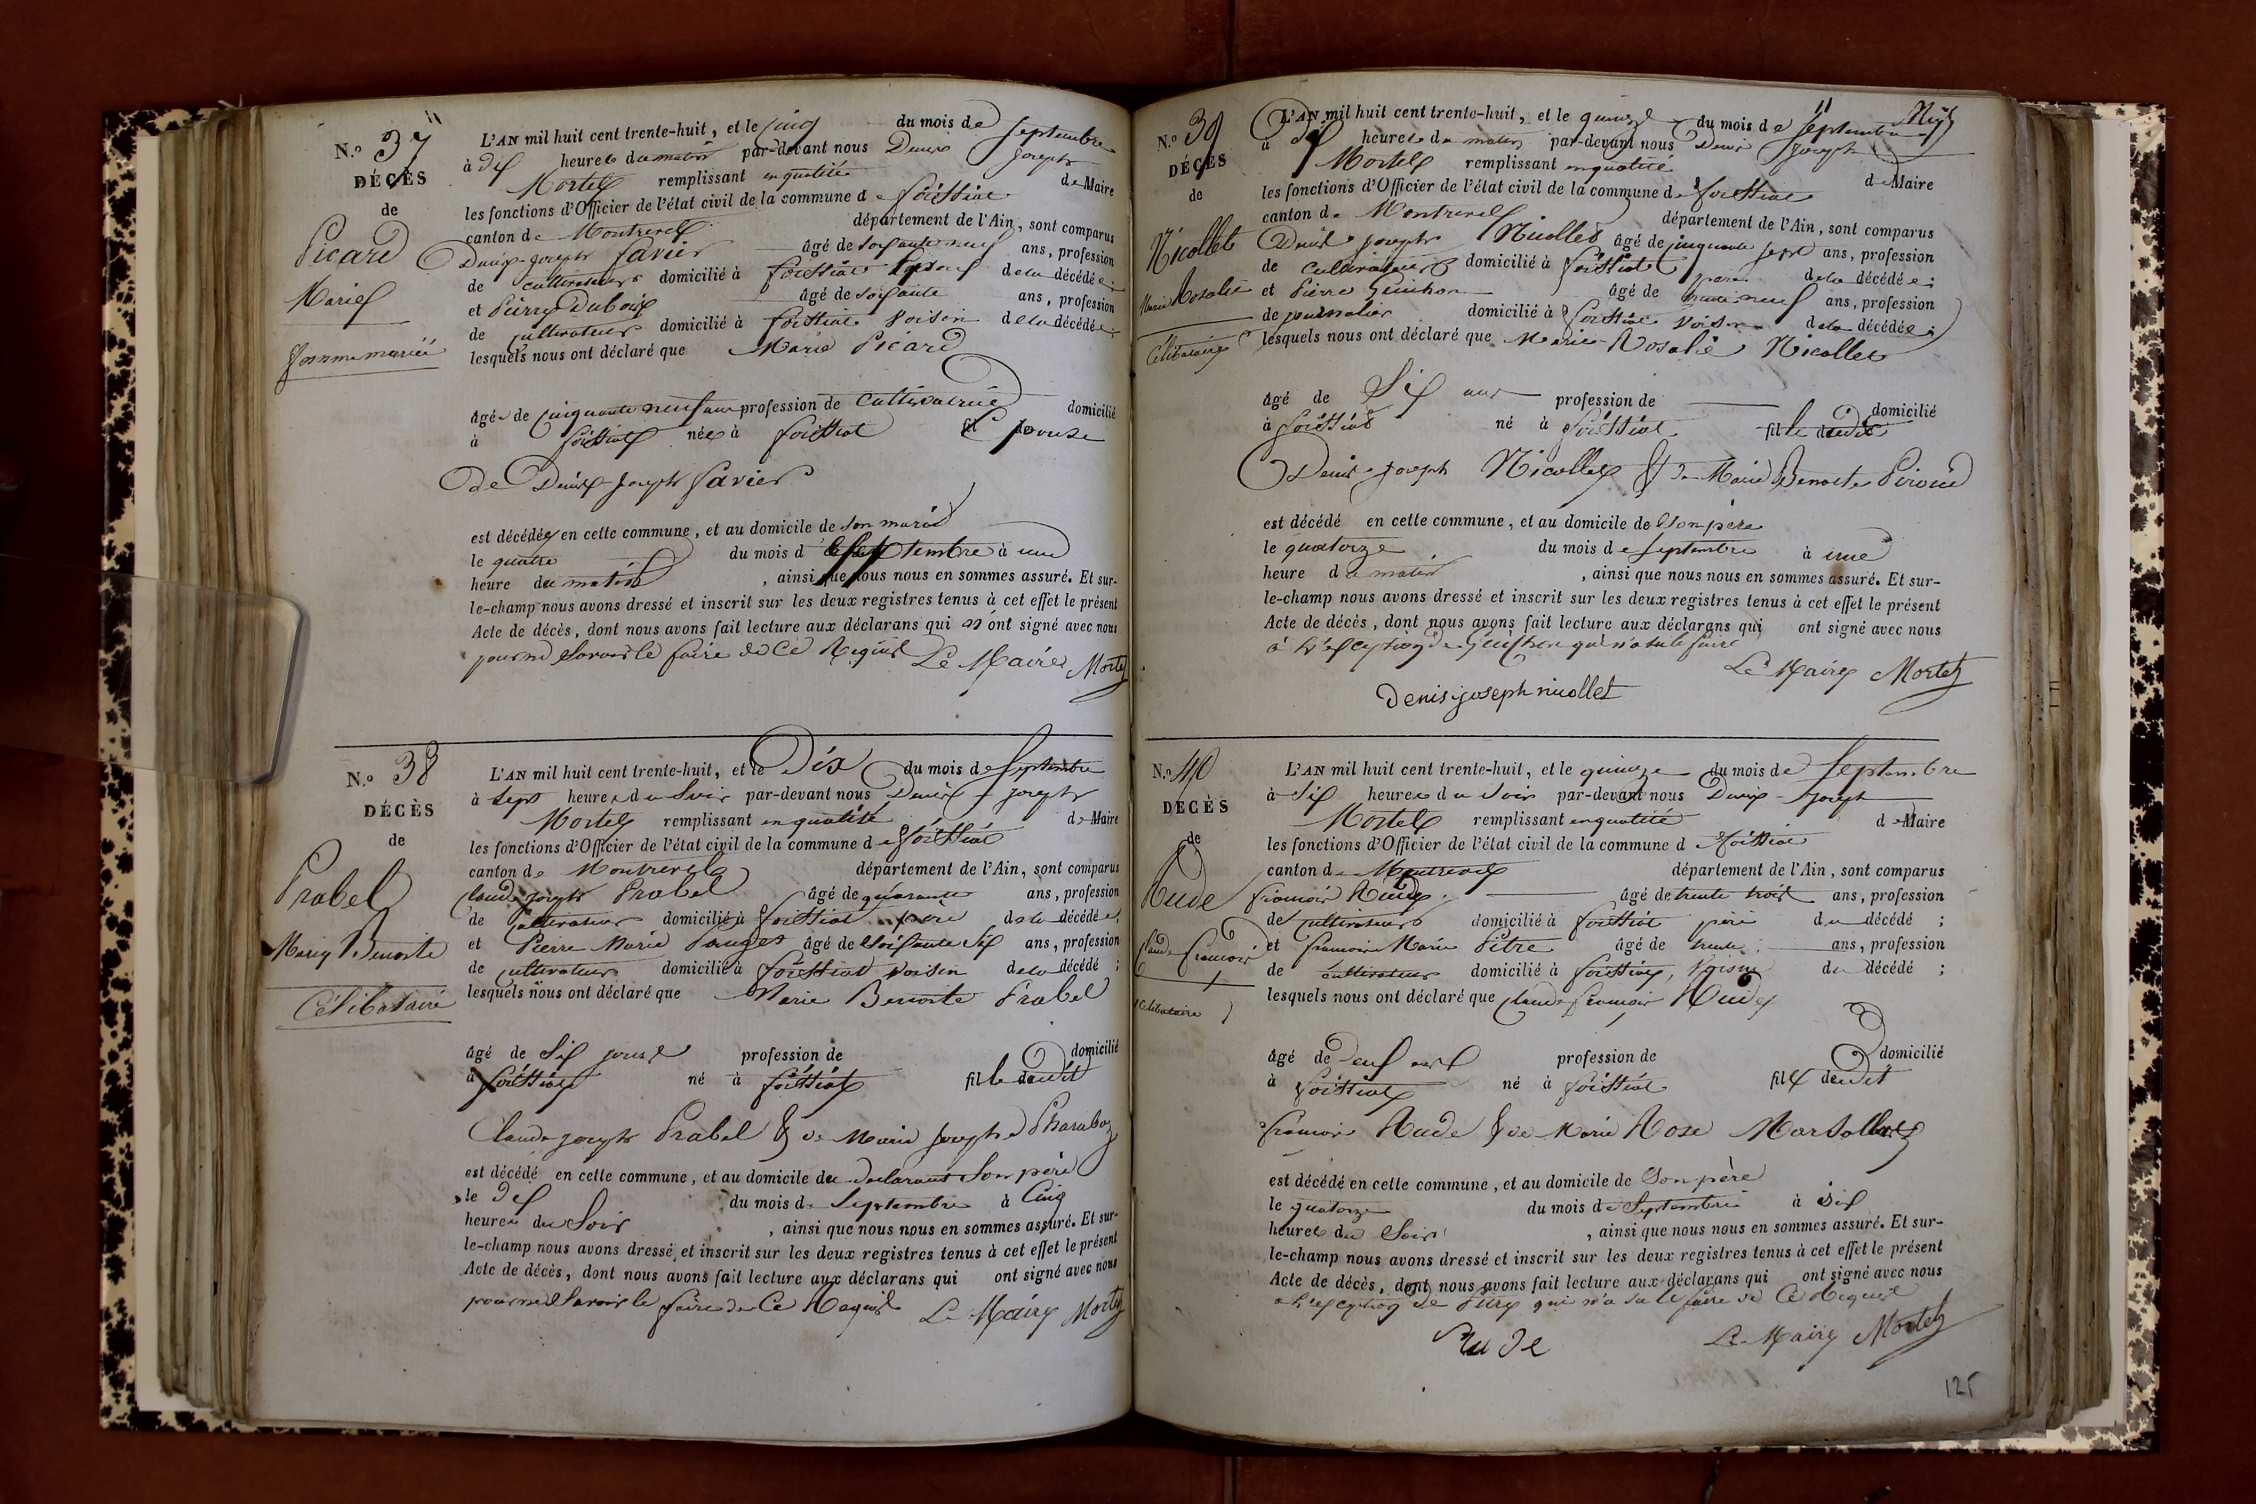 N.o 37
DÉCÈS
de
Picard
Marie
femme mariée
L'AN mil huit cent trente-huit, et le cinq du mois de septembre
à dix heures du matin par-devant nous Denis Joseph
Mortel remplissant en qualité de Maire
les fonctions d'Officier de l'état civil de la commune de foissiat
canton de Montrevel département de l'Ain, sont comparus
Denis-joseph favier âgé de soixante neuf ans, profession
de cultivateur domicilié à foissiat Epoux de la décédée;
et Pierre Dubois âgé de soixante ans, profession
de cultivateur domicilié à foissiat voisin de la décédée;
lesquels nous ont déclaré que Marie Picard
âgée de cinquante neuf ans profession de cultivatrice domicilié
à foissiat née à foissiat fil Epouse
de Denis-joseph favier
est décédée en cette commune, et au domicile de son mari
le quatre du mois de septembre à une
heure du matin, ainsi que nous nous en sommes assuré. Et sur-
le-champ nous avons dressé et inscrit sur les deux registres tenus à cet effet le présent
Acte de décès, dont nous avons fait lecture aux déclarans qui n ont signé avec nous
pour ne savoir le faire de ce Requis Le Maire Mortel
N.o 38
DÉCÈS
de
Prabel
Marie Benoite
Célibataire
L'AN mil huit cent trente-huit, et le Dix du mois de Septembre
à sept heures du soir par-devant nous Denis-joseph
Mortel remplissant en qualité de Maire
les fonctions d'Officier de l'état civil de la commune de foissiat
canton de Montrevel département de l'Ain, sont comparus
Claude joseph Prabel âgé de quarante ans, profession
de cultivateur domicilié à foissiat père de la décédée;
et Pierre Marie âgé de soixante six ans, profession
de cultivateur domicilié à foissiat voisin de la décédé;
lesquels nous ont déclaré que Marie Benoite Prabel
âgé de six jours profession de domicilié
à foissiat né à foissiat fille dudit
Claude-joseph Prabel & de Marie josephe Pharaboz
est décédé en cette commune, et au domicile du déclarant son père
le dix du mois de Septembre à Cinq
heures du Soir, ainsi que nous nous en sommes assuré. Et sur-
le-champ nous avons dressé et inscrit sur les deux registres tenus à cet effet le présent
Acte de décès, dont nous avons fait lecture aux déclarans qui ont signé avec nous
pour ne Savoir le faire de Ce Requis Le Maire Mortel
N.o 39
DÉCÈS
de
Nicollet
Marie Rosalie
Célibataire
L'AN mil huit cent trente-huit, et le quinze du mois de Septembre
à dix heures du matin par-devant nous Denis Joseph
Mortel remplissant en qualité de Maire
les fonctions d'Officier de l'état civil de la commune de foissiat
canton de Montrevel département de l'Ain, sont comparus
Denis joseph Nicollet âgé de cinquante sept ans, profession
de cultivateur domicilié à foissiat père de la décédée;
et Pierre Guichon âgé de trente neuf ans, profession
de journalier domicilié à foissiat voisin de la décédée;
lesquels nous ont déclaré que Marie-Rosalie Nicollet
âgé de Six ans profession de domicilié
à foissiat né à foissiat fille dudit
Denis-joseph Nicollet & de Marie Benoite Piroud
est décédé en cette commune, et au domicile de son père
le quatorze du mois de septembre à une
heure du matin, ainsi que nous nous en sommes assuré. Et sur-
le-champ nous avons dressé et inscrit sur les deux registres tenus à cet effet le présent
Acte de décès, dont nous avons fait lecture aux déclarans qui ont signé avec nous
à l'exception de Guichon qui n'a su le faire
Le Maire Mortel
Denis joseph nicollet
N.o 40
DÉCÈS
de
Rude
Claude François
Célibataire
L'AN mil huit cent trente-huit, et le quinze du mois de Septembre
à Six heures du soir par-devant nous Denis-Joseph
Mortel remplissant en qualité de Maire
les fonctions d'Officier de l'état civil de la commune de foissiat
canton de Montrevel département de l'Ain, sont comparus
françois Rude âgé de trente trois ans, profession
de cultivateur domicilié à foissiat père du décédé;
et françois Marie Pitre âgé de trente ans, profession
de cultivateur domicilié à foissiat, voisin du décédé;
lesquels nous ont déclaré que Claude françois Rude
âgé de Deux ans profession de domicilié
à foissiat né à foissiat fils dudit
françois Rude & de Marie Rose
est décédé en cette commune, et au domicile de Son père
le quatorze du mois de Septembre à six
heures du Soir, ainsi que nous nous en sommes assuré. Et sur-
le-champ nous avons dressé et inscrit sur les deux registres tenus à cet effet le présent
Acte de décès, dont nous avons fait lecture aux déclarans qui ont signé avec nous
à l'exception de Pitre qui n'a su le faire de Ce Requis
Rude Le Maire Mortel
125